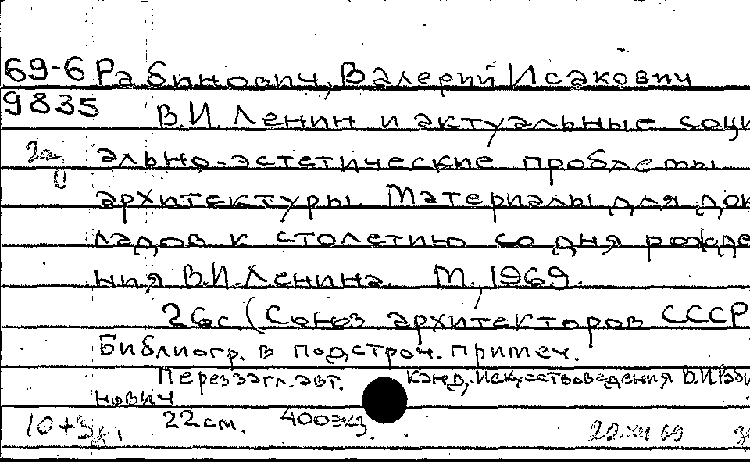 69-6 Рабинович, Валерий Исакович
9835 В.И. Ленин и актуальные соци
ально-эстетические проблемы
архитектуры. Материалы для док
ладов к столетию со дня рожде
ния В.И. Ленина. М., 1969.
26с (Союз архитекторов СССР
Библиогр. в подстроч. примеч.
Перед загл. авт. канд. искусствоведения В.И. Раби
нович
10+3 22см. 400экз. 20.XII 69